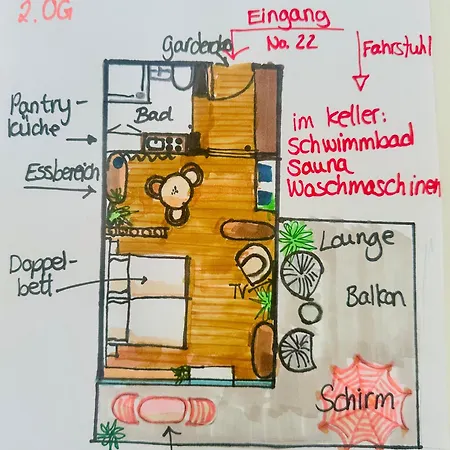 2.OG
Eingang
No. 22
Garderobe
Fahrstuhl
Pantry-
küche
Bad
im Keller:
Schwimmbad
Sauna
Waschmaschinen
Essbereich
Lounge
Doppel-
bett
TV
Balkon
Schirm